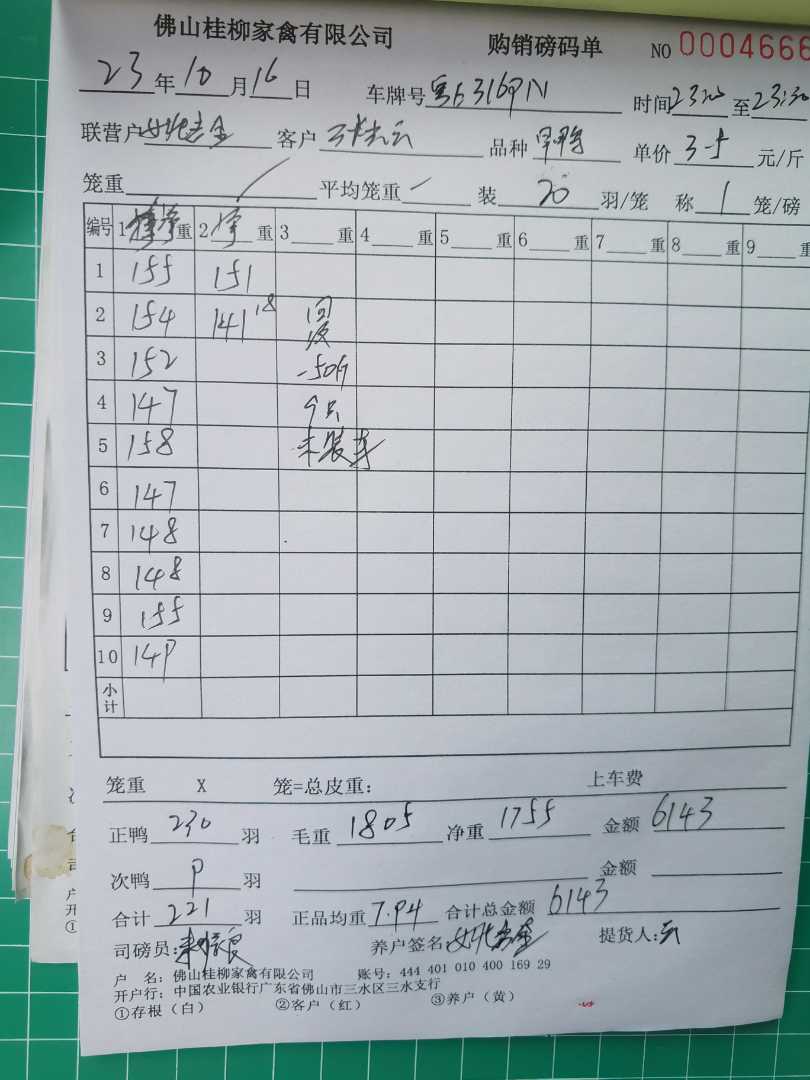 佛山桂柳家禽有限公司 购销磅码单 NO 0004666
23年10月16日 车牌号 时间23:00至23:30
联营户 客户 品种 单价3.5元/斤
笼重 平均笼重 装20羽/笼 称1笼/磅
编号 1 净重 2净重 3重 4重 5重 6重 7重 8重 9重
1 155 151
2 154 141 18 回
3 152 -50斤
4 147 9只
5 158 未装车
6 147
7 148
8 148
9 155
10 149
小计
笼重 X 笼=总皮重: 上车费
正鸭230羽 毛重1805 净重1755 金额6143
次鸭9羽 金额
合计221羽 正品均重7.94 合计总金额6143
司磅员: 养户签名 提货人:云
户 名: 佛山桂柳家禽有限公司 账号: 444 401 010 400 169 29
开户行: 中国农业银行广东省佛山市三水区三水支行
①存根(白) ②客户(红) ③养户(黄)